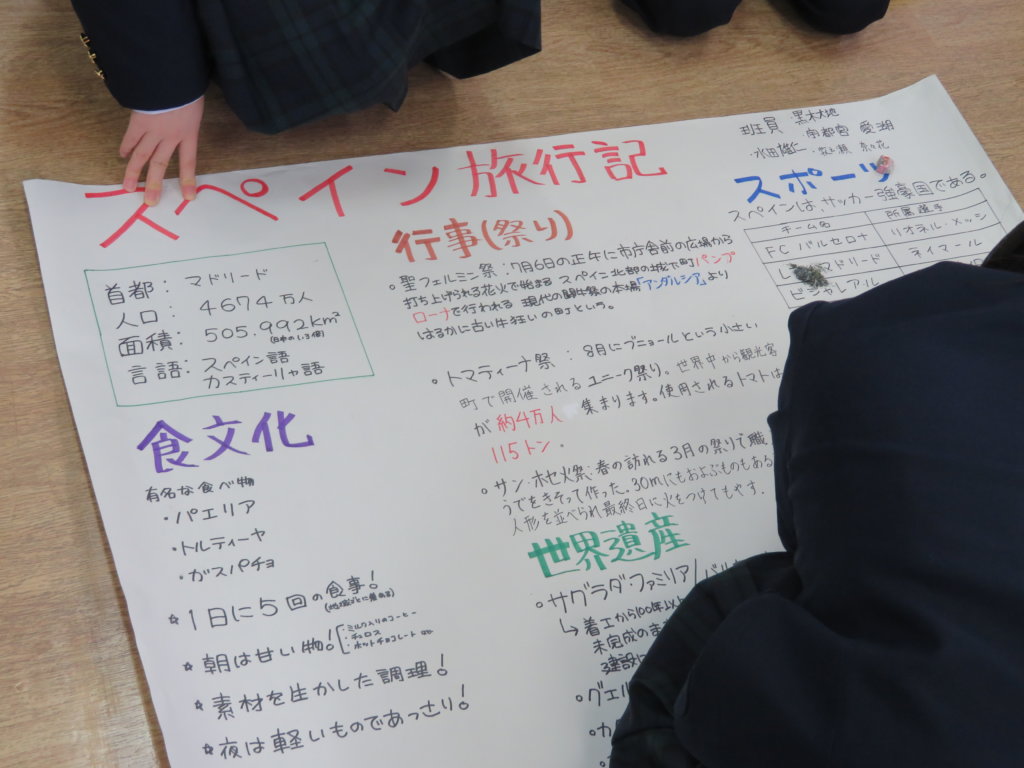 スペイン旅行記
班員 黒木大地
宇都宮 愛湖
・水田雄仁 ・
首都: マドリード
人口: 4674万人
面積: 505.992km²
(日本の1.3倍)
言語: スペイン語
カスティーリャ語
食文化
有名な食べ物
・パエリア
・トルティーヤ
・ガスパチョ
☆1日に5回の食事!
(地域ごとに差ある)
☆朝は甘い物!
・ミルク入りのコーヒー
・チュロス
・ホットチョコレート
☆素材を生かした調理!
☆夜は軽いものであっさり!
行事(祭り)
。聖フェルミン祭:7月6日の正午に市庁舎前の広場から
打ち上げられる花火で始まる スペイン北部の城下町パンプ
ローナで行われる 現代の闘牛祭の本場「アンダルシア」より
はるかに古い牛狂いの町という。
。トマティーナ祭 : 8月にブニョールという小さい
町で開催されるユニーク祭り。世界中から観光客
が 約4万人 集まります。使用されるトマトは
115トン。
。サン・ホセ火祭:春の訪れる3月の祭りで職
うでをきそって作った。30mにもおよぶものもある
人形を並べられ最終日に火をつけてもやす.
世界遺産
。サグラダファミリア/バル
↳着工から100年以上
未完成のま
建設に
。グエル
カ
スポーツ
スペインは サッカー強豪国である。
チーム名 所属選手
FC バルセロナ リオネル・メッシ
マドリード ネイマール
ビジャレアル